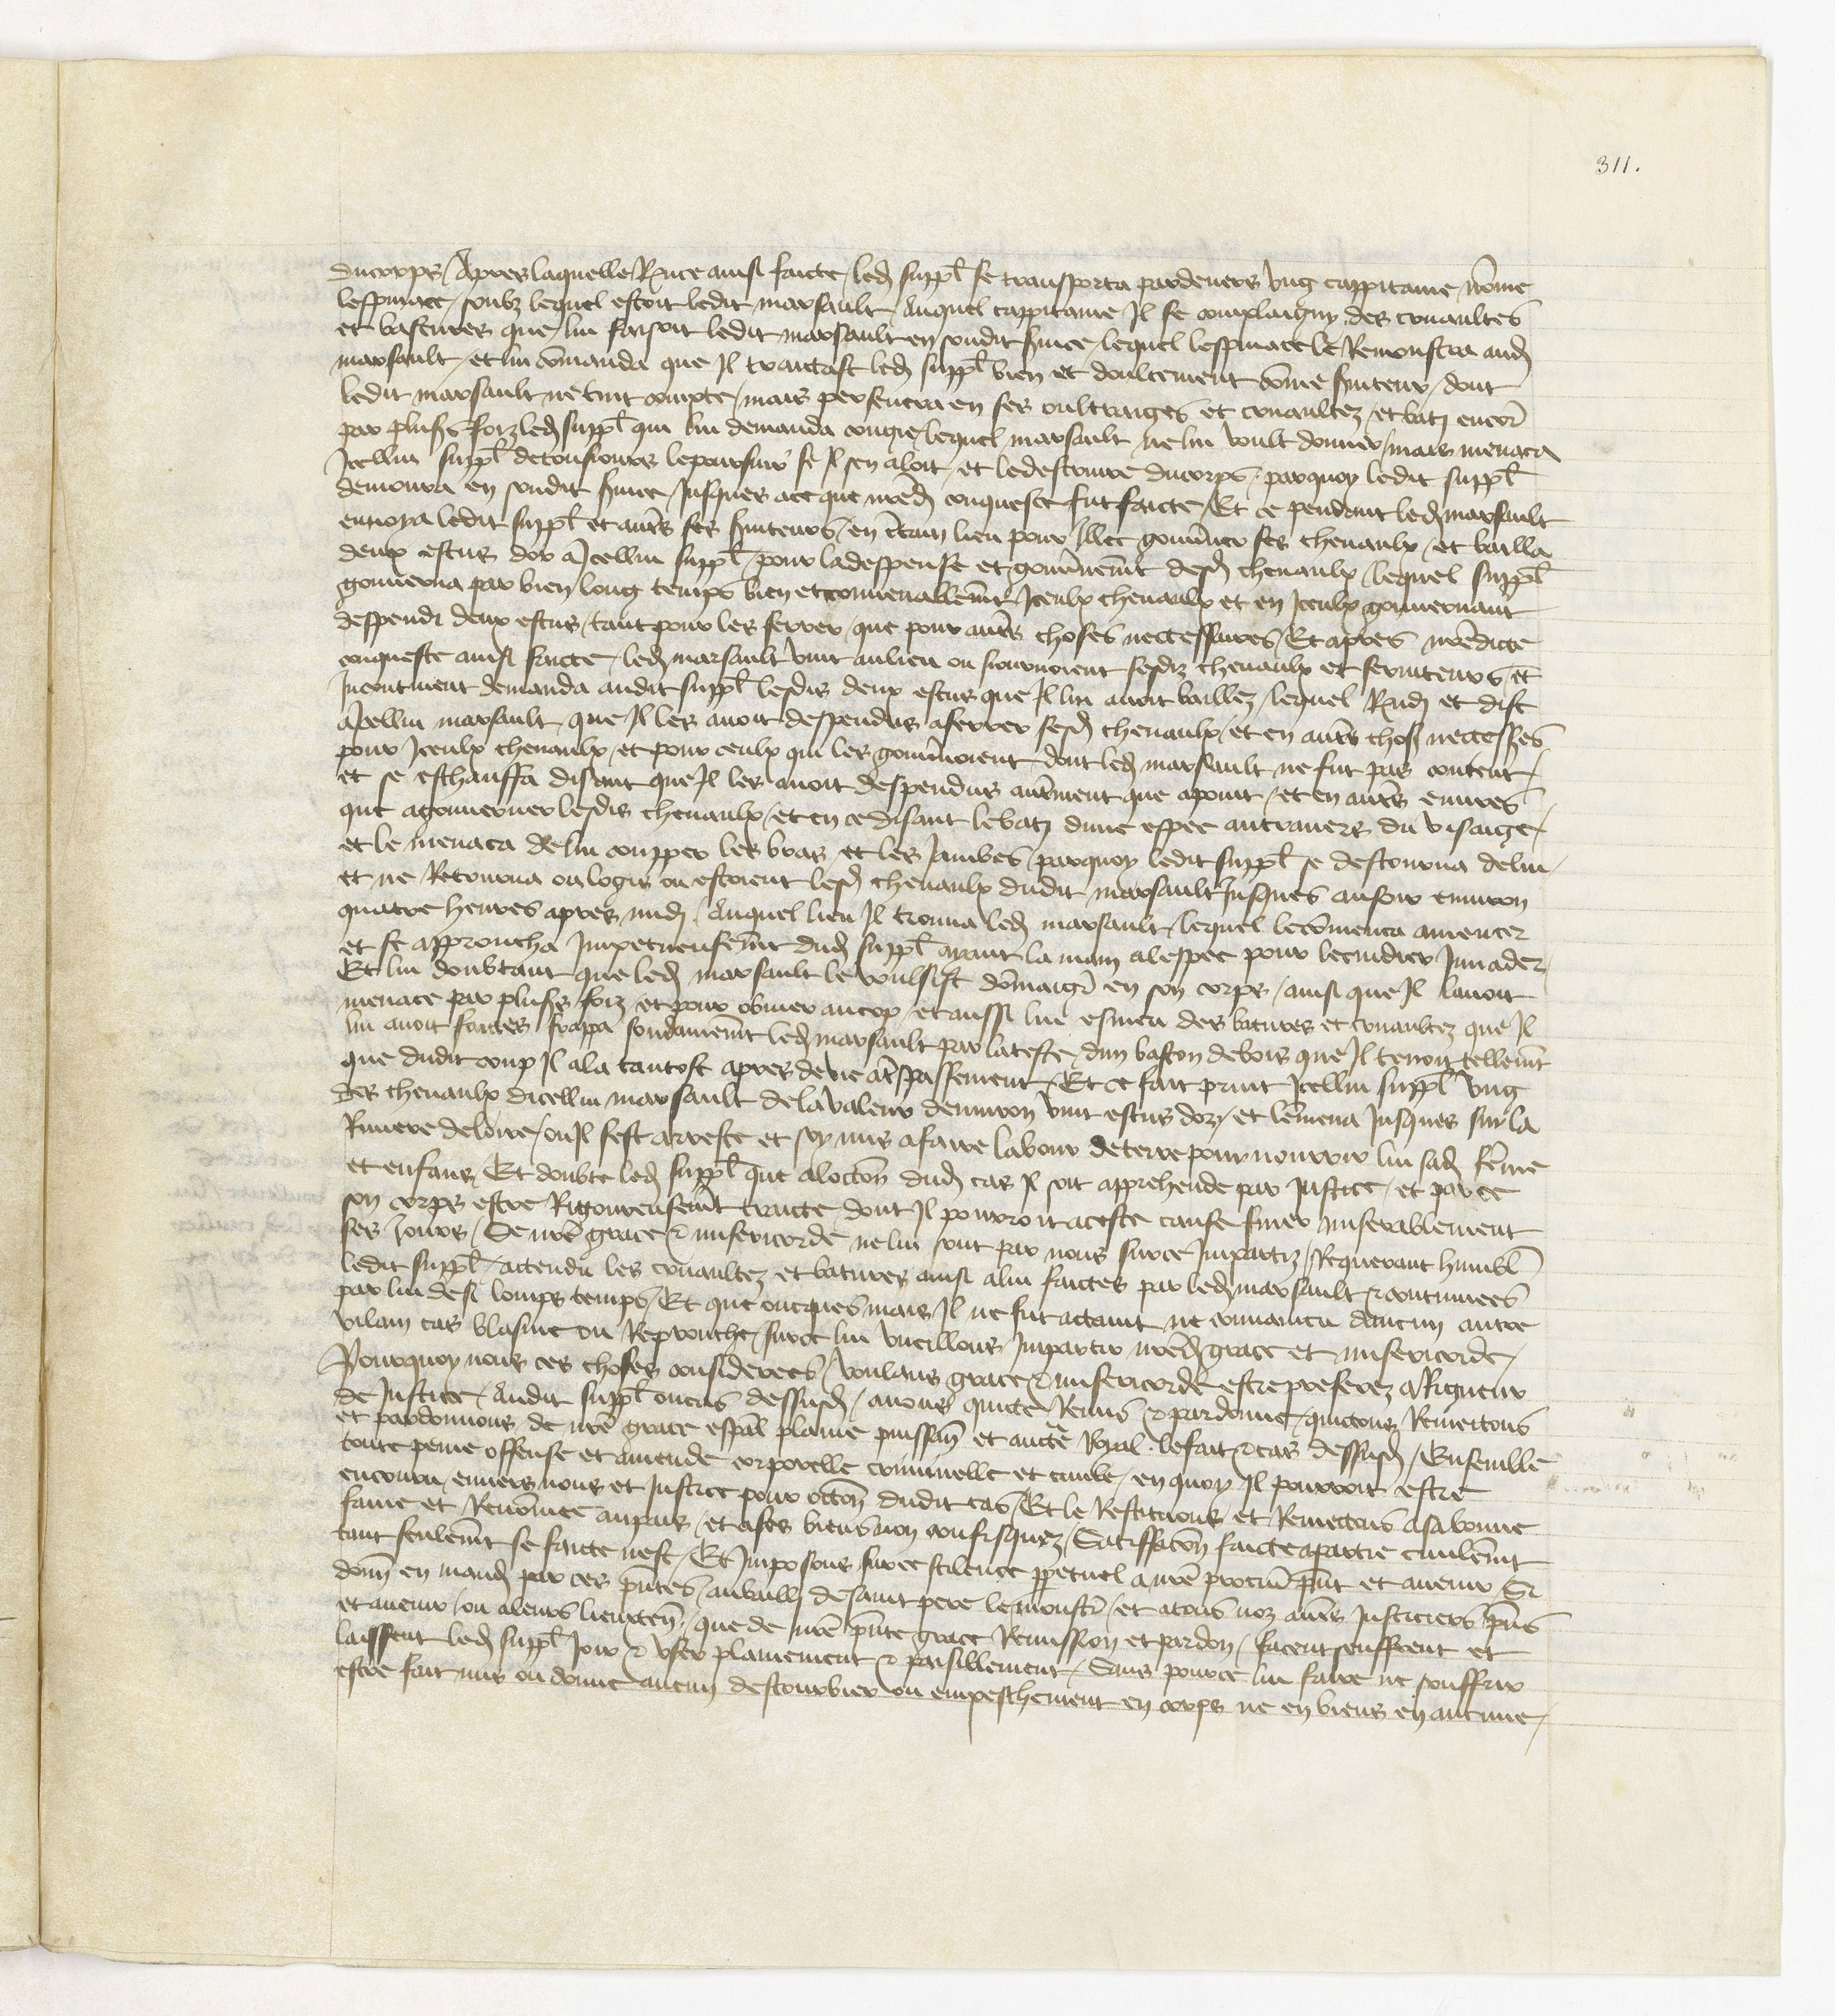 311.
du corps / Apres laquelle Rxnce ainsi faicte / led suppl se transporta pardevers ung cappitaine nōme
lespinace / soubz lequel estoit ledit marsault / Auquel cappitaine Il se complaigny des cruaultes
et bastures que lui faisoit ledit marsault en sondit svice / lequel lespinace le Remonstra aud
marsault / et lui cōmanda que Il traictast led suppl bien et doulcement cōme sviteur / dont
ledit marsault ne tint compte / mais persevera en ses oultraiges et cruaultez / et bati encor
par plusrs foiz led suppl qui lui demanda congie / lequel marsault ne lui voult donner / mais menaca
Icellui suppl de tousiours le poursuir se Il sen aloit / et le destruire du corps / parquoy ledit suppl
demoura en sondit svice / Jusques a ce que nred conqueste fut faicte / Et ce pendant led marsault
envoya ledit suppl et autrs ses sviteurs / en ctain lieu pour Illec gouvner ses chevaulx / et bailla
deux escus dor a Icellui suppl / pour la despense et gouvnemt desd chevaulx / lequel suppl
gouverna par bien long temps bien et convenablemt Iceulx chevaulx et en Iceulx gouvernant
despendi deux escus / tant pour les ferrer que pour autrs choses neccessaires / Et apres nredicte
conqueste ainsi faicte / led marsault vint au lieu ou seiournoient sesdiz chevaulx et serviteurs / et
Incontinent demanda audit suppl lesdis deux escus que Il lui avoit baillez / lequel Rndi et dist
a Icellui marsault que Il les avoit despendus a ferrer sesd chevaulx / et en autrs chosz neccesses
pour Iceulx chevaulx / et pour ceulx qui les gouvnoient dont led marsault ne fut pas content /
et se eschauffa disant que Il les avoit despendus autrement que apoint / et en autrs euvres
que a gouverner lesdis chevaulx / et en ce disant le bati dune espee au travers du visaige /
et le menaca de lui coupper les bras et les Jambes / parquoy ledit suppl se destourna de lui /
et ne Retourna ou logis ou estoient lesd chevaulx dudit marsault Jusques au soir environ
quatre heures apres midi / Auquel lieu Il trouva led marsault / lequel le cōmenca a menacer
et se approucha Impetueusemt dud suppl ayant la main a lespee pour le cuidier Invader /
Et lui doubtant que led marsault le voulsist dōmaigr en son corps / ainsi que Il lavoit
menace par plusrs foiz et pour obvier au cop / et aussi lui esmeu des batures et cruaultez que Il
lui avoit faictes frappa soudainemt led marsault par la teste / dun baston de bois que Il tenoit tellemt
que dudit coup Il ala tantost apres de vie a trspassement / Et ce fait print Icellui suppl ung
des chevaulx dicellui marsault de la valeur denviron vint escus dor / et lemena Jusques sur la
Riviere de loire / ou Il sest arreste et soy mis a faire labour de terre pour nourrir lui sad fēme
et enfans / Et doubte led suppl que a loccon dud cas Il soit apprehende par Justice / et par ce
son corps estre Rigoureusemt traicte dont Il pourroit a ceste cause finer miserablement
ses Jours / Se nre grace & misericorde ne lui sont par nous sur ce Impartiz / Requerant humbl
ledit suppl / attendu les cruaultez et batures ainsi a lui faictes par led marsault & continuees
par lui de si longs temps / Et que oncques mais Il ne fut actaint ne convaincu daucun autre
vilain cas blasme ou Reprouche / sur ce lui vueillons Impartir nred grace et misericorde /
Pourquoy nous ces choses considerees / voulans grace & misericorde estre preferez a Rigueur
de Justice / Audit suppl ou cas dessusd / avons quicte Remis & pardonne / quictons Remectons
et pardonnons de nre grace espal plaine puissan et aucte Royal / le fait & cas dessusd / Ensemble
toute peine offense et amende corporelle criminelle et civile / en quoy Il pourroit estre
encouru envers nous et Justice pour occon dudit cas / Et le Restituons et Remectons a sa bonne
fame et Renōmee au pais / et a ses biens non confisquez / Satisffacon faicte a partie civilemt
tant seulemt se faicte nest / Et Imposons sur ce scilence ppetuel a nre procur pnt et avenir / Si
donn en mand par ces pntes / au bailli de saint pere le moustr / et a tous noz autrs Justiciers pns
et avenir / ou a leurs lieuxten / que de nre pnte grace Remission et pardon / facent seuffrent et
laissent led suppl Joir & user plainement & paisiblement / Sans pour ce lui faire ne souffrir
estre fait mis ou donne aucun destourbier ou empeschement en corps ne en biens en aucune /